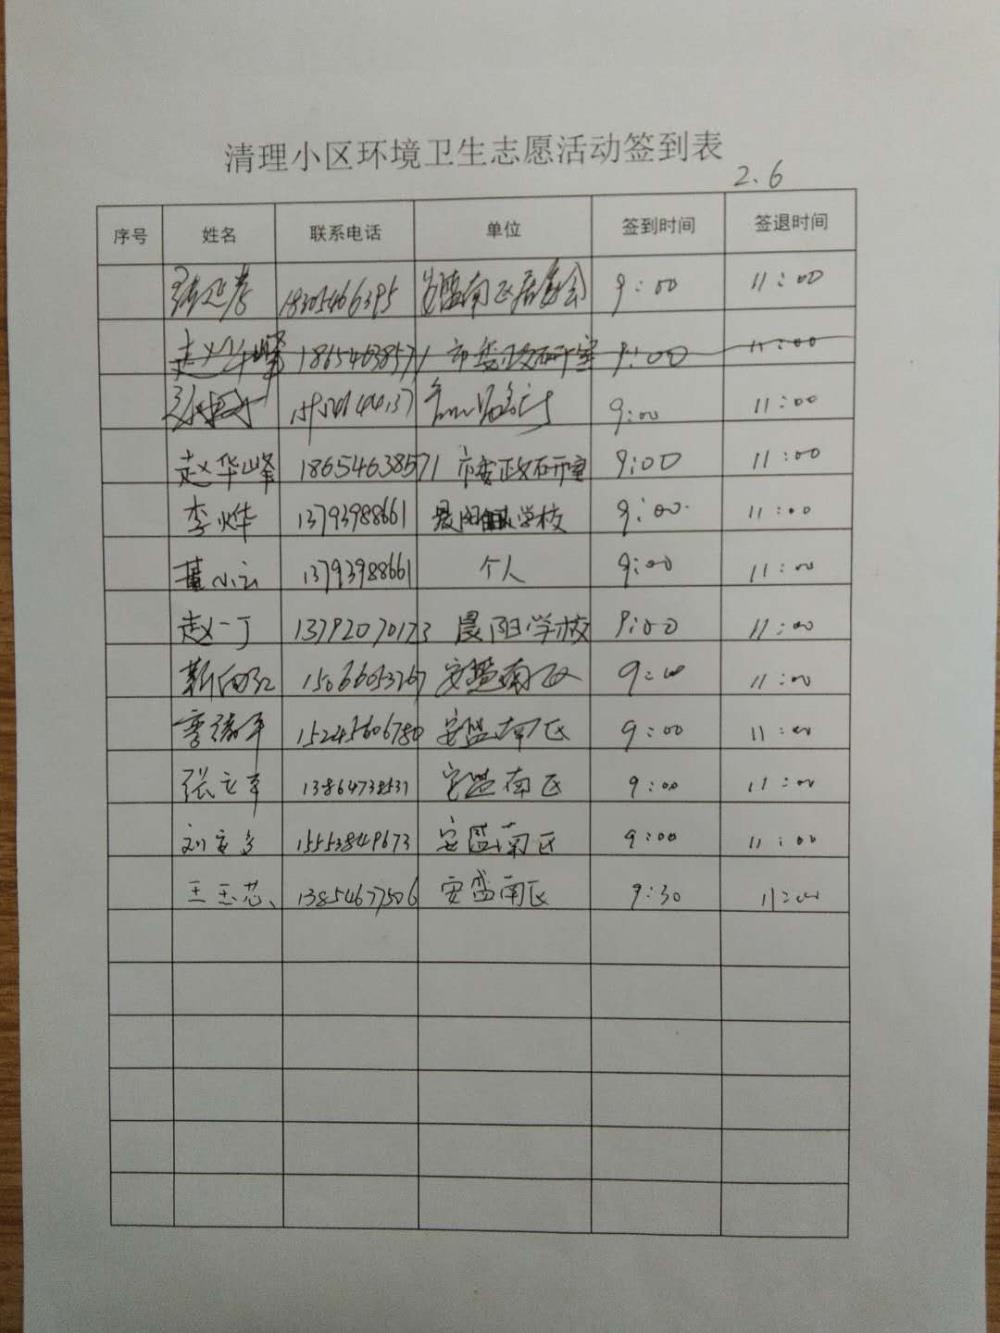 清理小区环境卫生志愿活动签到表
2.6
序号 姓名 联系电话 单位 签到时间 签退时间
18305466395 安盛南区居委会 9:00 11:00
赵华峰 18654638571 市委政研室 9:00 11:00
9:00 11:00
赵华峰 18654638571 市委政研室 9:00 11:00
李烨 13793988661 晨阳学校 9:00 11:00
董小云 13793988661 个人 9:00 11:00
赵一丁 13792070173 晨阳学校 9:00 11:00
靳向红 15066053767 安盛南区 9:00 11:00
李 平 15245606780 安盛南区 9:00 11:00
张立平 13864738531 安盛南区 9:00 11:00
刘 15553849673 安盛南区 9:00 11:00
王玉芯 13854677506 安盛南区 9:30 11:00